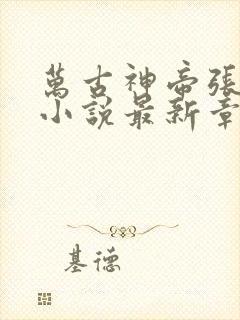 萬古神帝張
小說最新章
基德